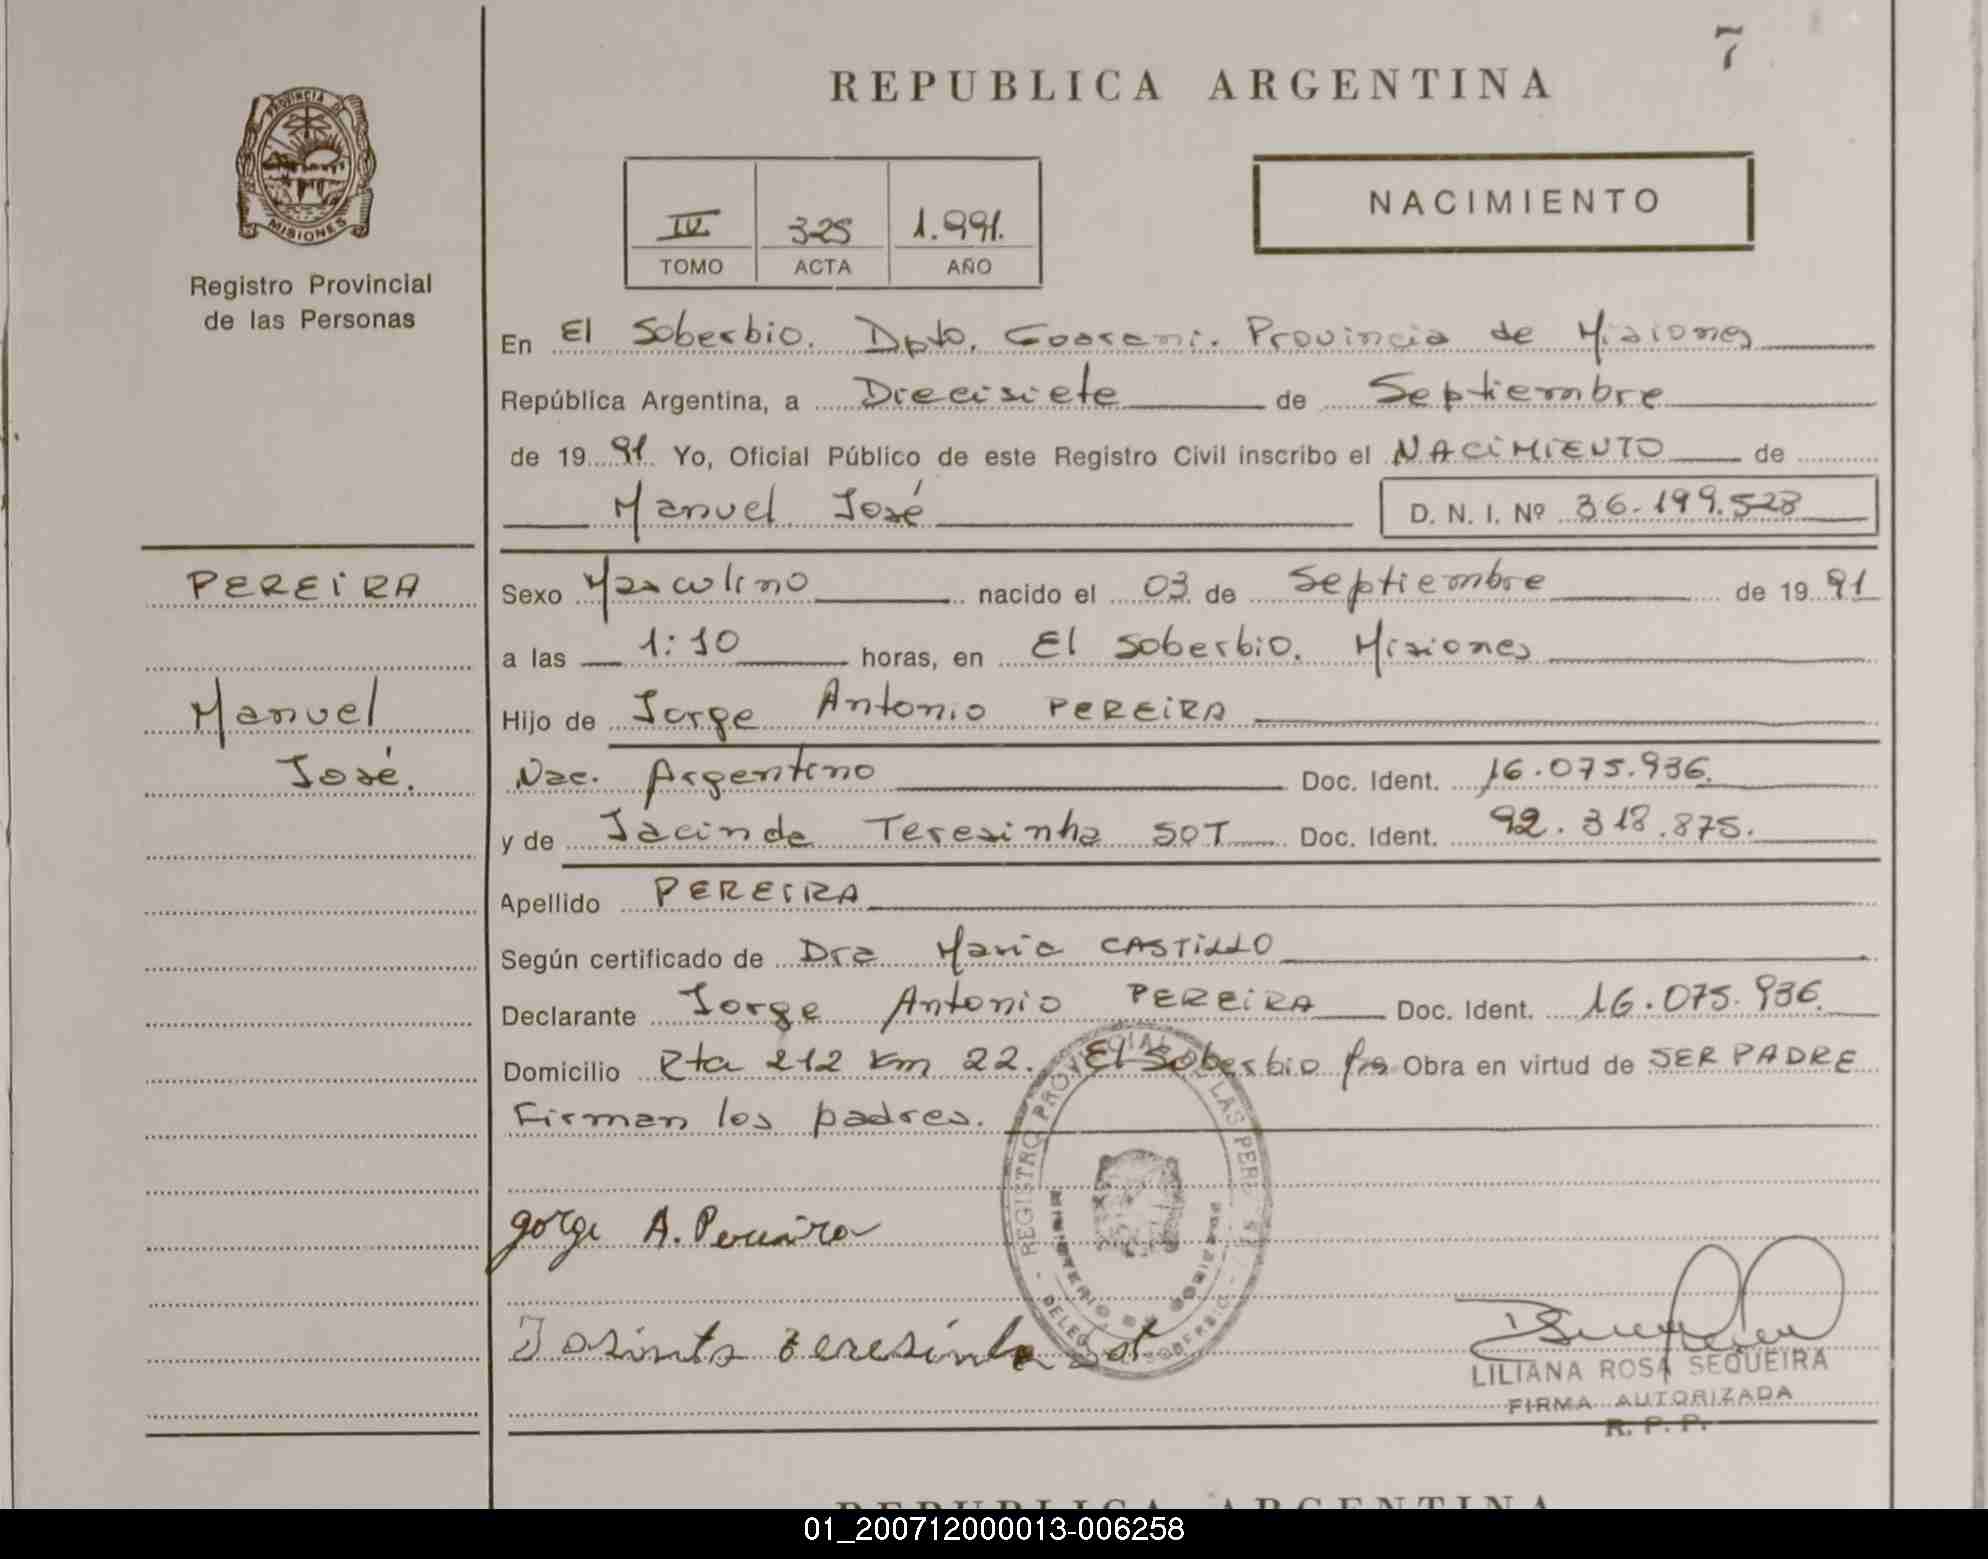 7
REPUBLICA ARGENTINA
PROVINCIA DE
MISIONES
Registro Provincial
de las Personas
NACIMIENTO
IV 325 1.991.
TOMO ACTA AÑO
En El Soberbio. Dpto. Guarani. Provincia de Misiones
República Argentina, a Diecisiete de Septiembre
de 19 91 Yo, Oficial Público de este Registro Civil inscribo el NACIMIENTO de
Manuel José D. N. I. Nº 36.199.528
PEREIRA
Manuel
José.
Sexo Masculino nacido el 03 de Septiembre de 19 91
a las 1:10 horas, en El Soberbio. Misiones
Hijo de Jorge Antonio PEREIRA
Nac. Argentino Doc. Ident. 16.075.936.
y de Jacinda Teresinha SOT Doc. Ident. 92.318.875.
Apellido PEREIRA
Según certificado de Dra Maria CASTILLO
Declarante Jorge Antonio PEREIRA Doc. Ident. 16.075.936.
Domicilio Rta 212 Km 22. El Soberbio Obra en virtud de SER PADRE
Firman los padres.
REGISTRO PROVINCIAL DE LAS PERS
Jorge A. Pereira
teresinha Sot
LILIANA ROSA SEQUEIRA
FIRMA AUTORIZADA
R. P. P.
REPUBLICA ARGENTINA
01_200712000013-006258